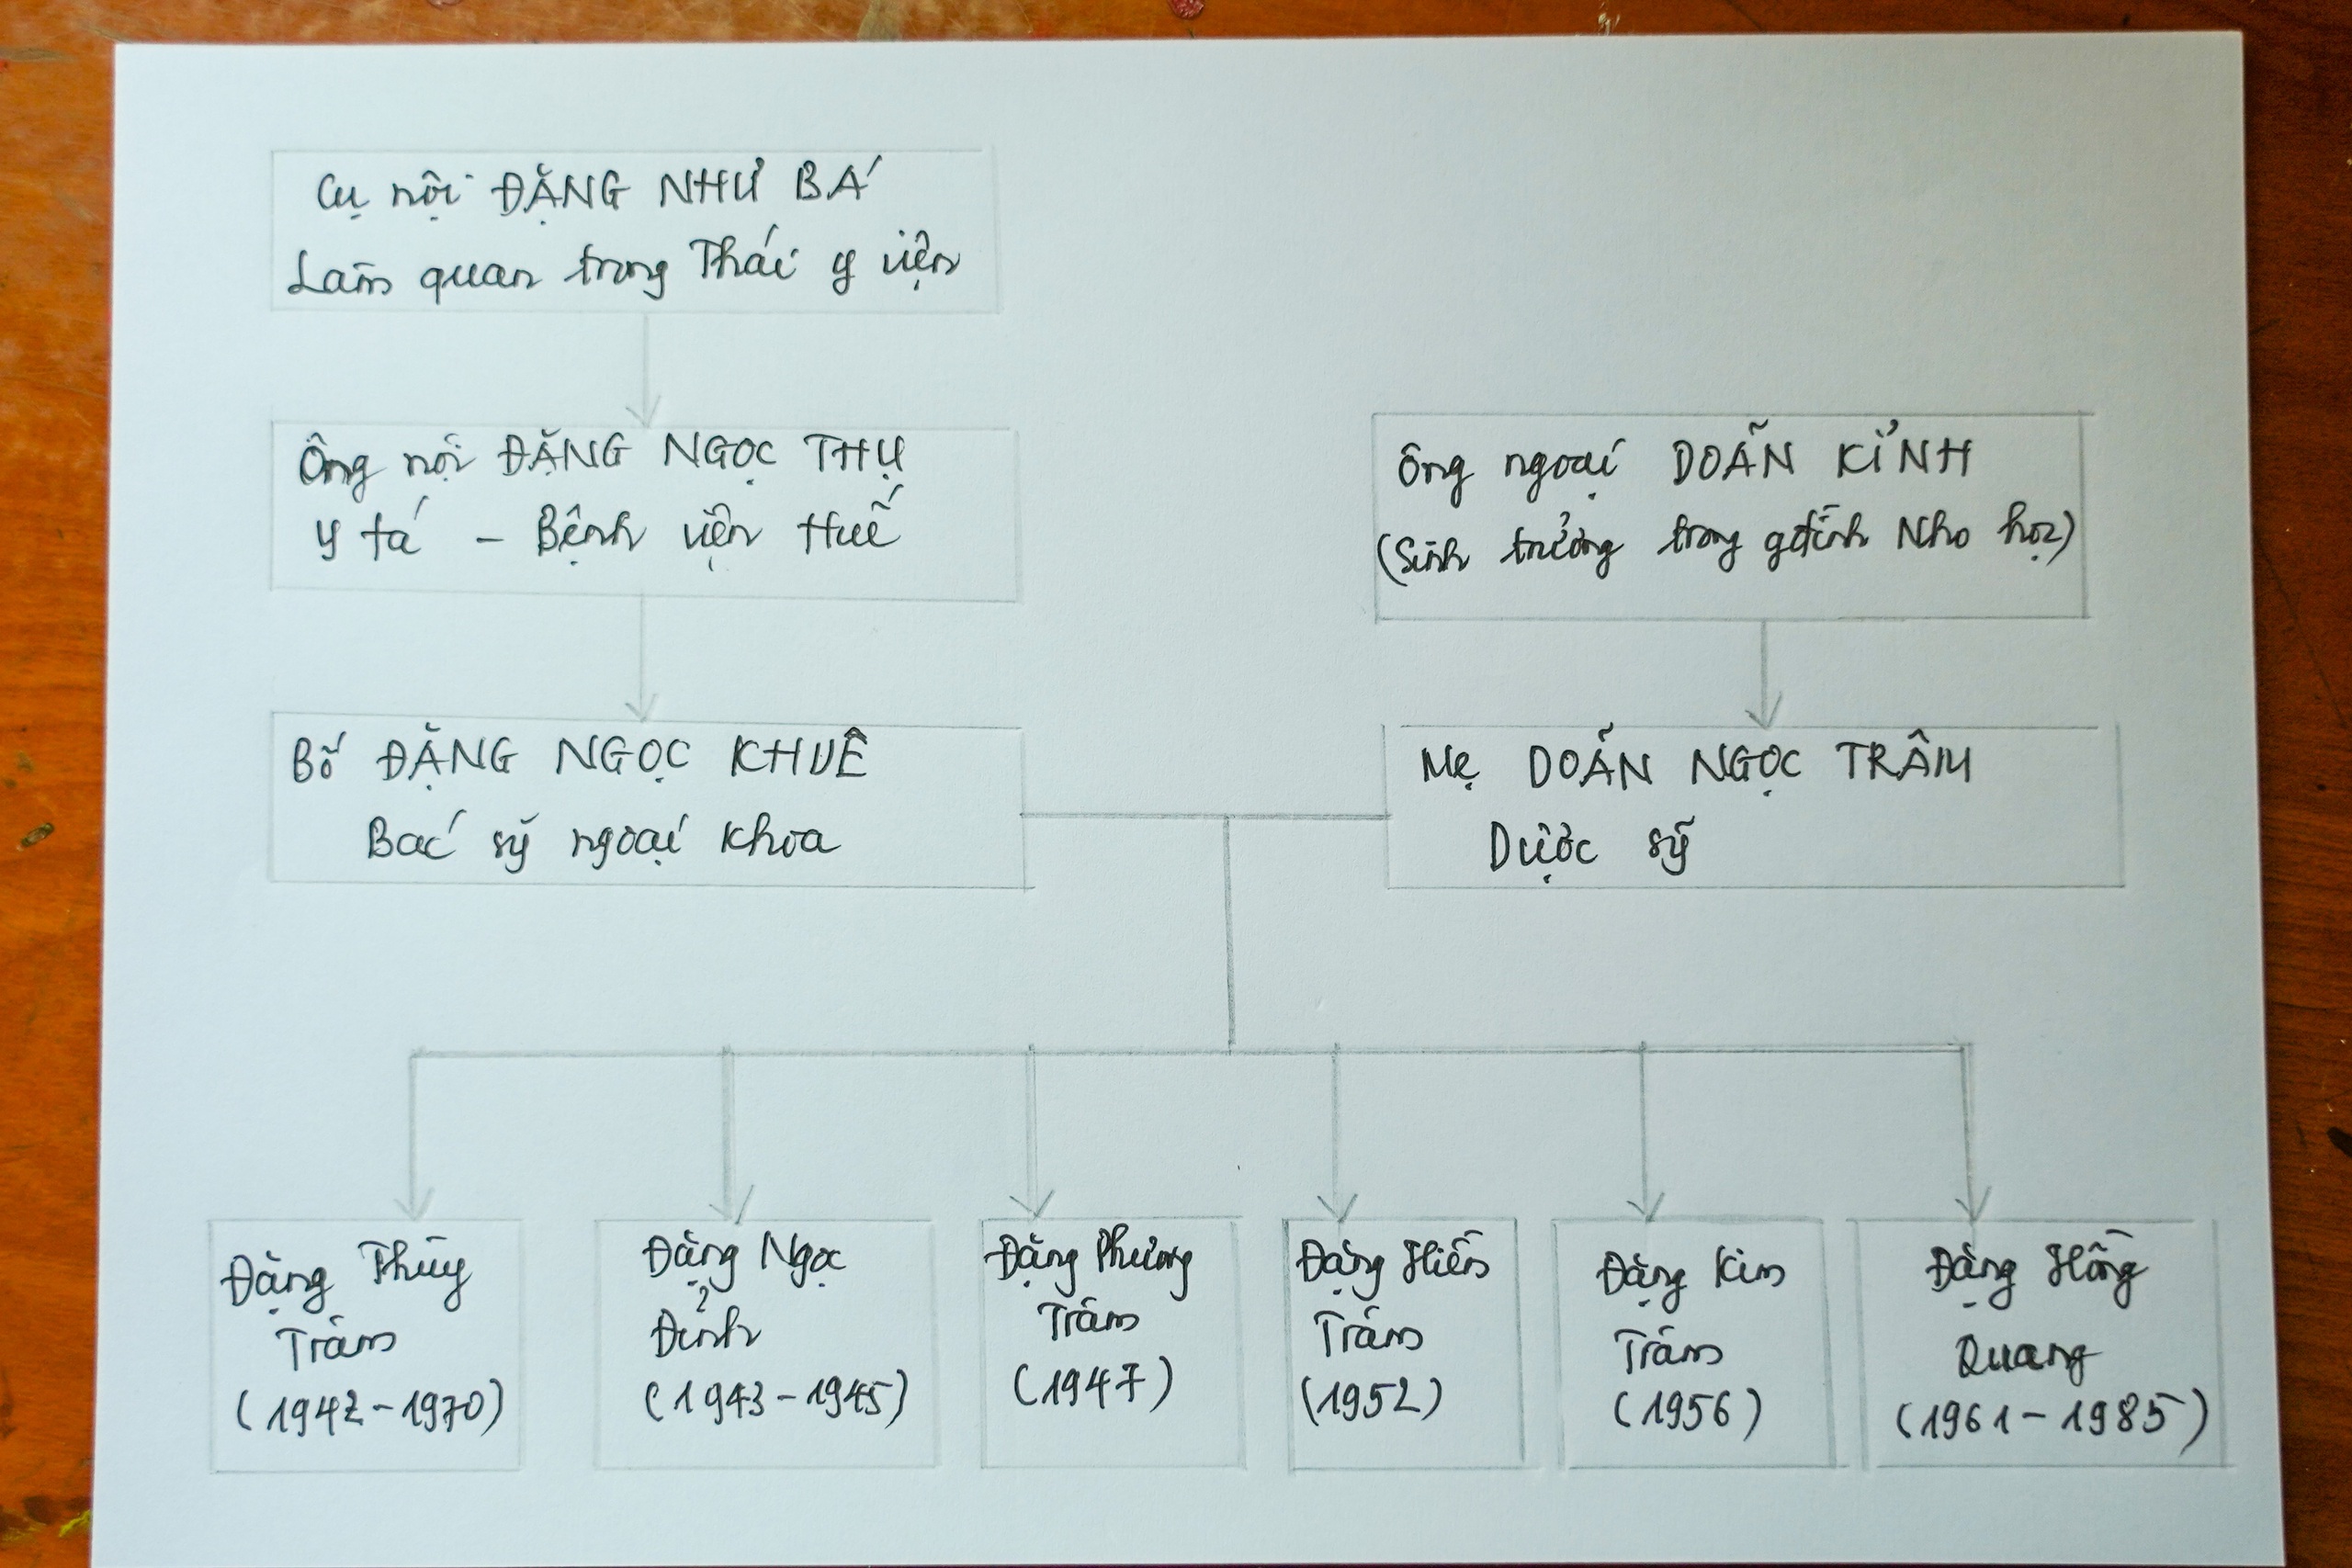 Cụ nội ĐẶNG NHƯ BÁ
Làm quan trong Thái y viện
Ông nội ĐẶNG NGỌC THỤ
Y tá - Bệnh viện Huế
Ông ngoại DOÃN KỈNH
(Sinh trưởng trong gđình Nho học)
Bố ĐẶNG NGỌC KHUÊ
Bác sỹ ngoại khoa
Mẹ DOÃN NGỌC TRÂM
Dược sỹ
Đặng Thùy
Trâm
(1942-1970)
Đặng Ngọc
Đỉnh
(1943-1945)
Đặng Phương
Trâm
(1947)
Đặng Hiền
Trâm
(1952)
Đặng Kim
Trâm
(1956)
Đặng Hồng
Quang
(1961-1985)